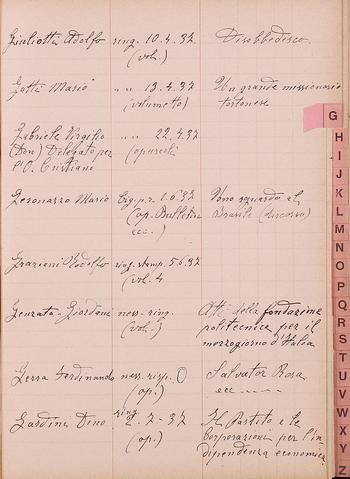 Giuliotti Adolfo ring. 10.4.32 Disobbedisco.
(vol.)
Gatti Mario " " 13.4.32 Un grande missionario
(volumetto) tortonese
Gabriele Virgilio " " 22.4.32
(Don) Delegato per (opuscoli)
l'O. Cristiano
Gesonazzo Mario big.p.r. 1.6.32 Uno sguardo al
(op. Bulletin Brasile (discorso)
ecc.)
Graziani Rodolfo ring. stamp. 5.6.32
(vol. 4
Genzato-Giordani ness. ring. Atti della fondazione
(vol.) politecnica per il
mezzogiorno d'Italia
Gerra Ferdinando ness. risp. 0 Salvator Rosa
ecc
Gardina Dino ring. 2-7-32 Il Partito e le
(op.) Corporazioni per l'in-
dipendenza economica
G
H
I
J
K
L
M
N
O
P
Q
R
S
T
U
V
W
X
Y
Z